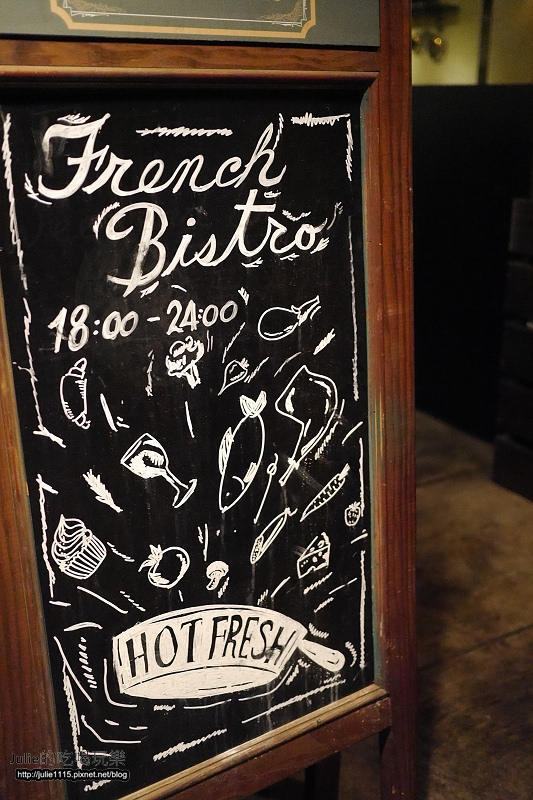 French
Bistro
18:00-24:00
HOT FRESH
Julie的吃喝玩樂
http://julie1115.pixnet.net/blog